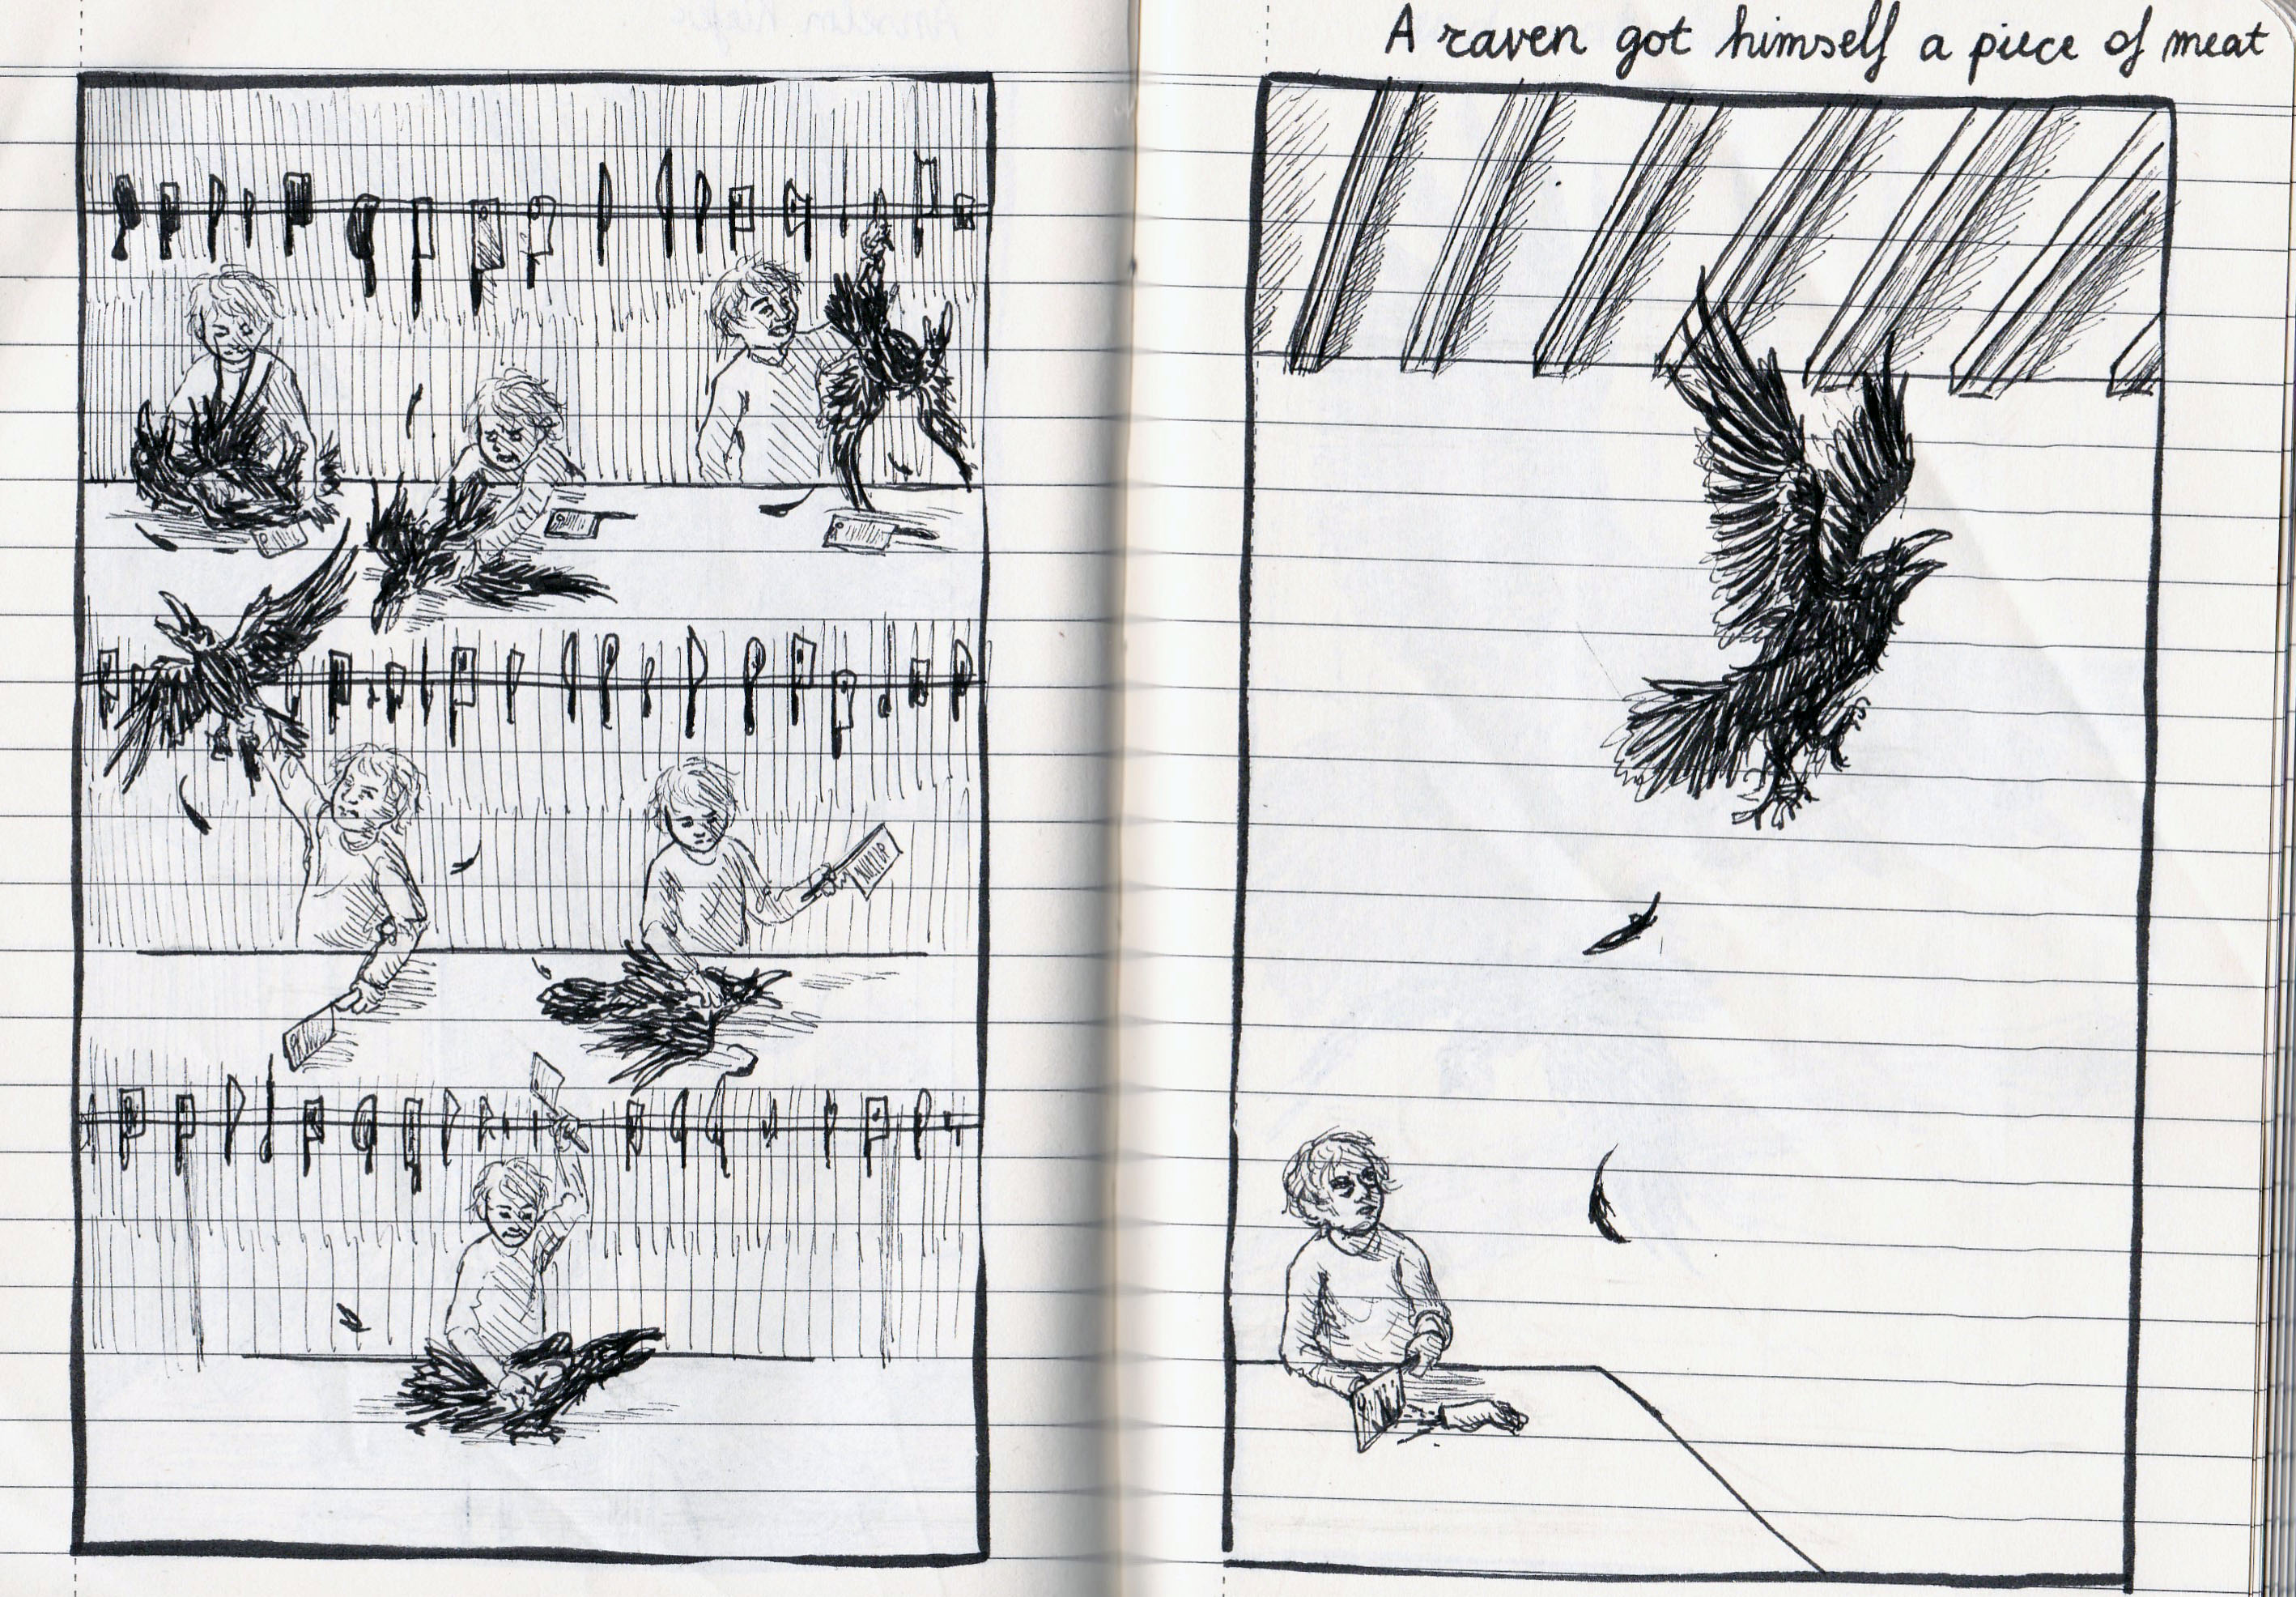 A raven got himself a piece of meat